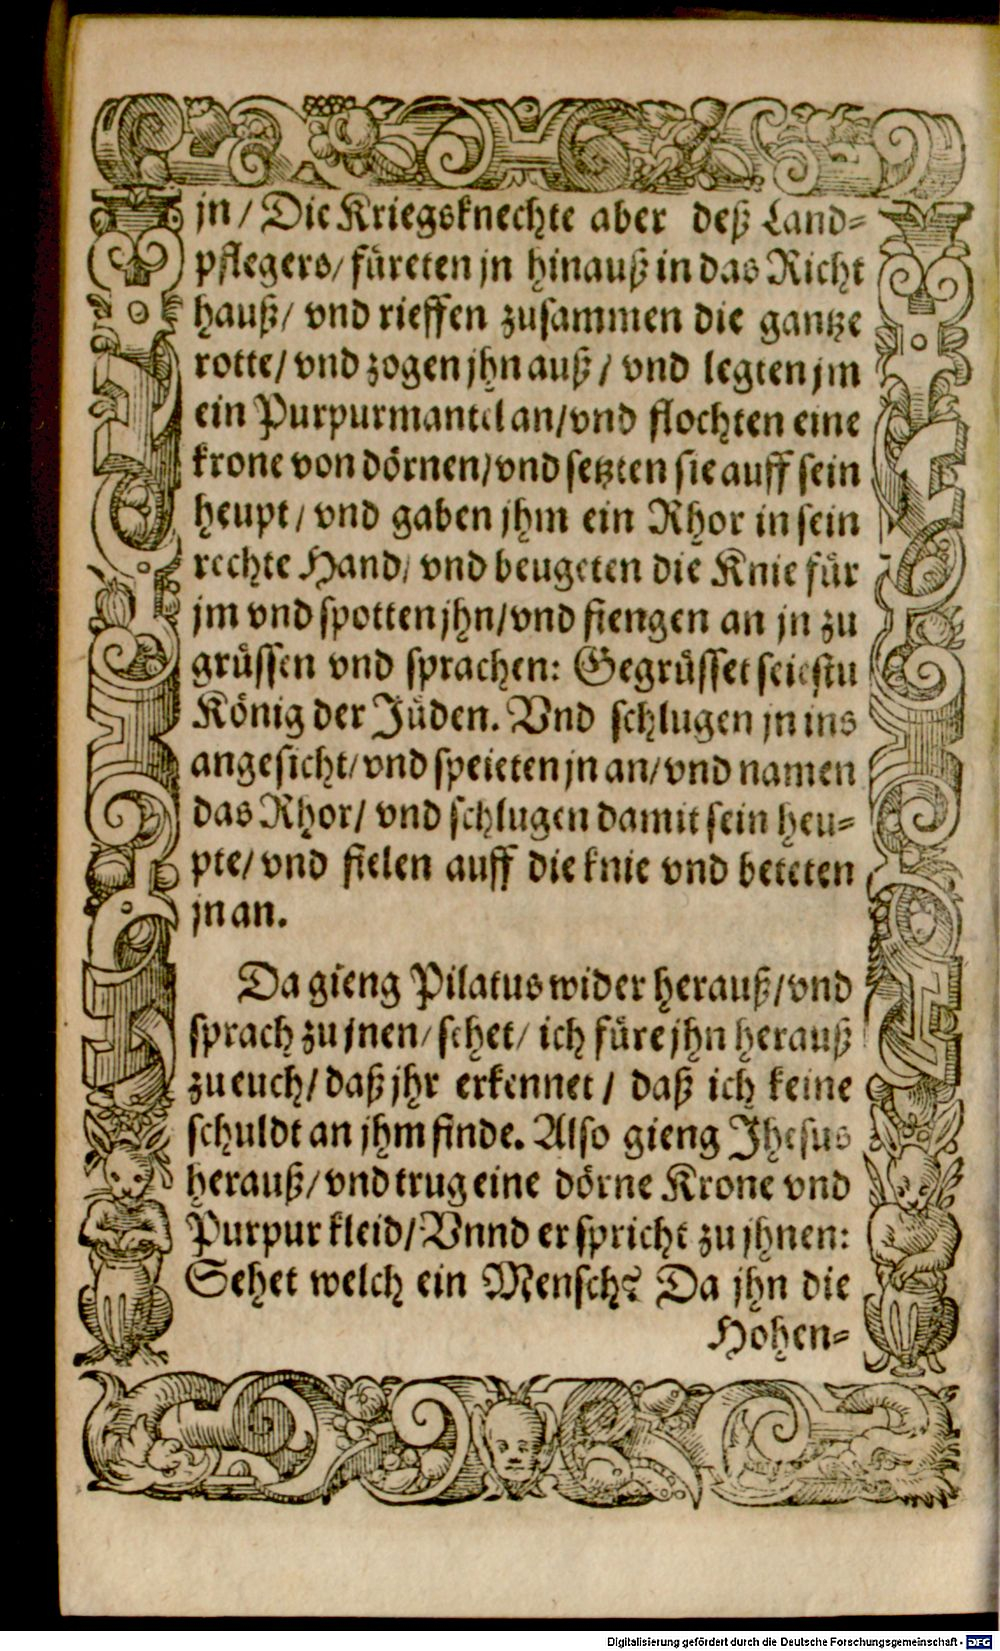 jn/ Die Kriegsknechte aber deß Land-
pflegers/ füreten jn hinauß in das Richt
hauß/ vnd rieffen zusammen die gantze
rotte/ vnd zogen jhn auß/ vnd legten jm
ein Purpurmantel an/ vnd flochten eine
krone von dörnen/ vnd setzten sie auff sein
heupt/ vnd gaben jhm ein Rhor in sein
rechte Hand/ vnd beugeten die Knie für
jm vnd spotten jhn/ vnd fiengen an jn zu
grüssen vnd sprachen: Gegrüsset seiestu
König der Jüden. Vnd schlugen jn ins
angesicht/ vnd speieten jn an/ vnd namen
das Rhor/ vnd schlugen damit sein heu-
pte/ vnd fielen auff die knie vnd beteten
jn an.
Da gieng Pilatus wider herauß/ vnd
sprach zu jnen/ sehet/ ich füre jhn herauß
zu euch/ daß jhr erkennet/ daß ich keine
schuldt an jhm finde. Also gieng Jhesus
herauß/ vnd trug eine dörne Krone vnd
Purpur kleid/ Vnnd er spricht zu jhnen:
Sehet welch ein Mensch? Da jhn die
Hohen-
Digitalisierung gefördert durch die Deutsche Forschungsgemeinschaft - DFG